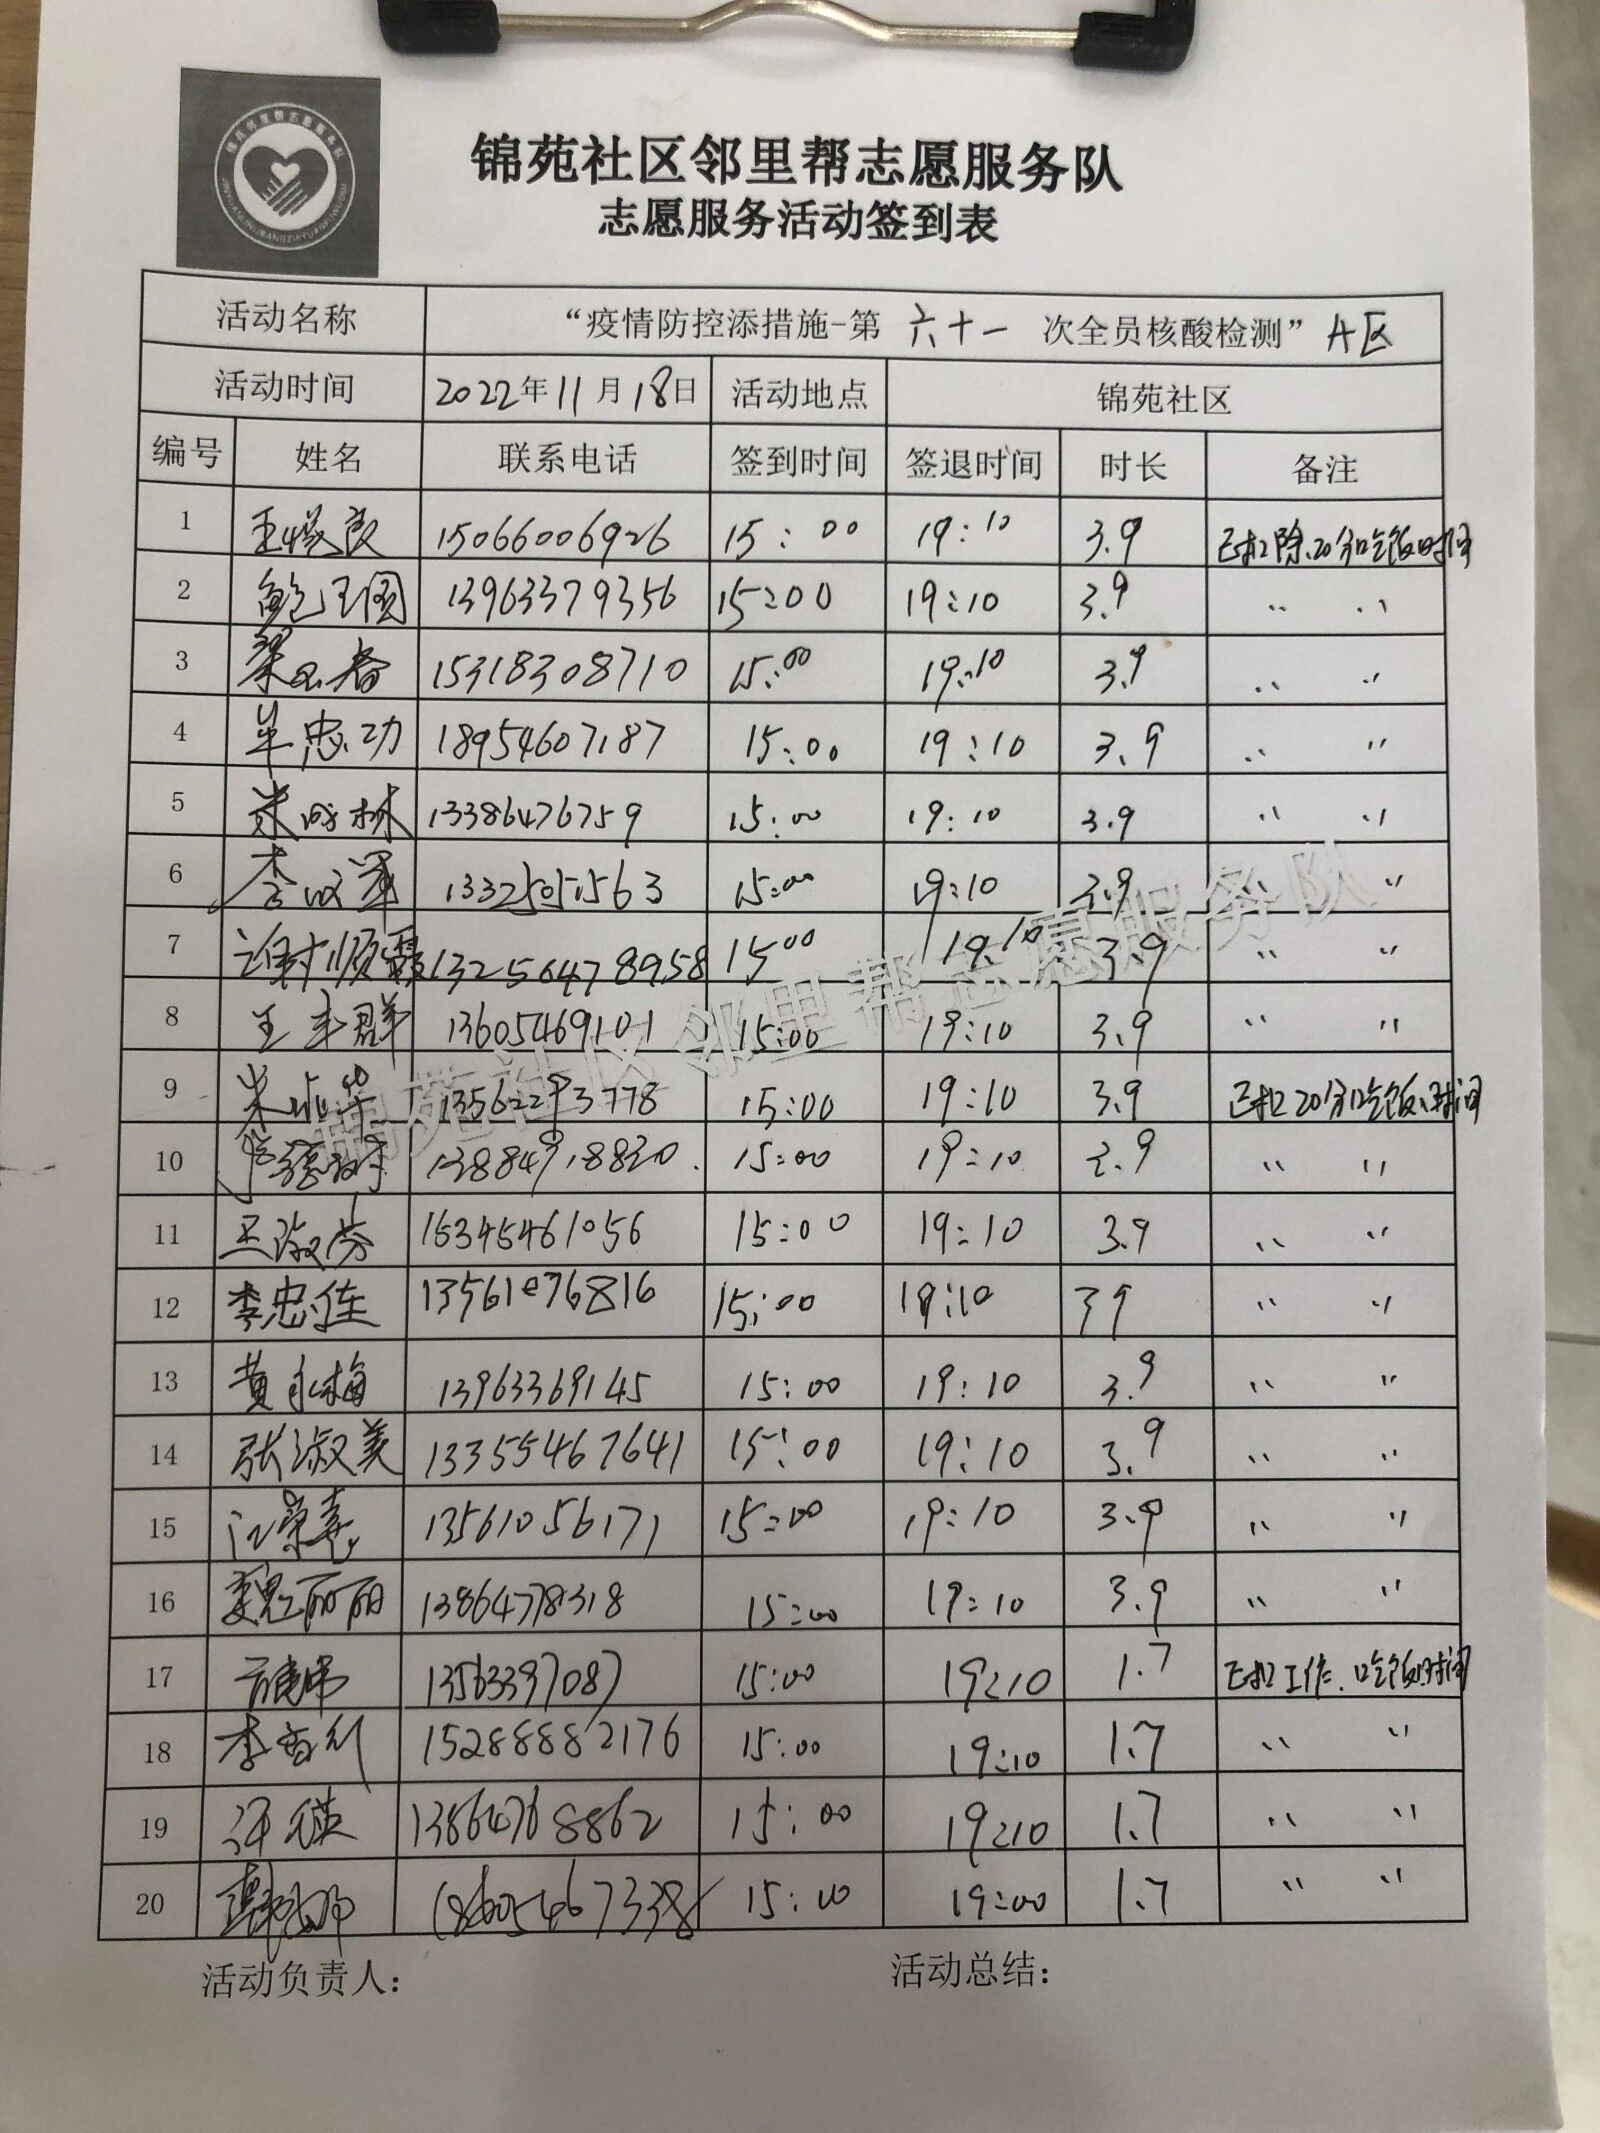 锦苑社区邻里帮志愿服务队
志愿服务活动签到表
活动名称 “疫情防控添措施-第 六十一 次全员核酸检测” A区
活动时间 2022年11月18日 活动地点 锦苑社区
编号 姓名 联系电话 签到时间 签退时间 时长 备注
1 15066006926 15:00 19:10 3.9 已扣除20分吃饭时间
2 鲍玉国 13963379356 15:00 19:10 3.9 〃 〃
3 15318308710 15:00 19:10 3.9 〃 〃
4 牟忠功 18954607187 15:00 19:10 3.9 〃 〃
5 13386476759 15:00 19:10 3.9 〃 〃
6 13325051563 15:00 19:10 3.9 〃 〃
7 谢顺霞 15:00 19:10 3.9 〃 〃
8 13605469101 15:00 19:10 3.9 〃 〃
9 13562293778 15:00 19:10 3.9 已扣20分吃饭时间
10 13884918820 15:00 19:10 〃 〃
11 王淑芬 15345461056 15:00 19:10 3.9 〃 〃
12 李忠佳 13561076816 15:00 19:10 39 〃 〃
13 黄永梅 13963369145 15:00 19:10 3.9 〃 〃
14 张淑美 13355467641 15:00 19:10 3.9 〃 〃
15 13561056171 15:00 19:10 3.9 〃 〃
16 魏丽丽 13864778318 15:00 19:10 3.9 〃 〃
17 13563397087 15:00 19:10 1.7 已扣工作、吃饭时间
18 15288882176 15:00 19:10 1.7 〃 〃
19 13864768862 15:00 19:10 1.7 〃 〃
20 18605467338 15:00 19:00 1.7 〃 〃
活动负责人： 活动总结：
锦苑社区邻里帮志愿服务队